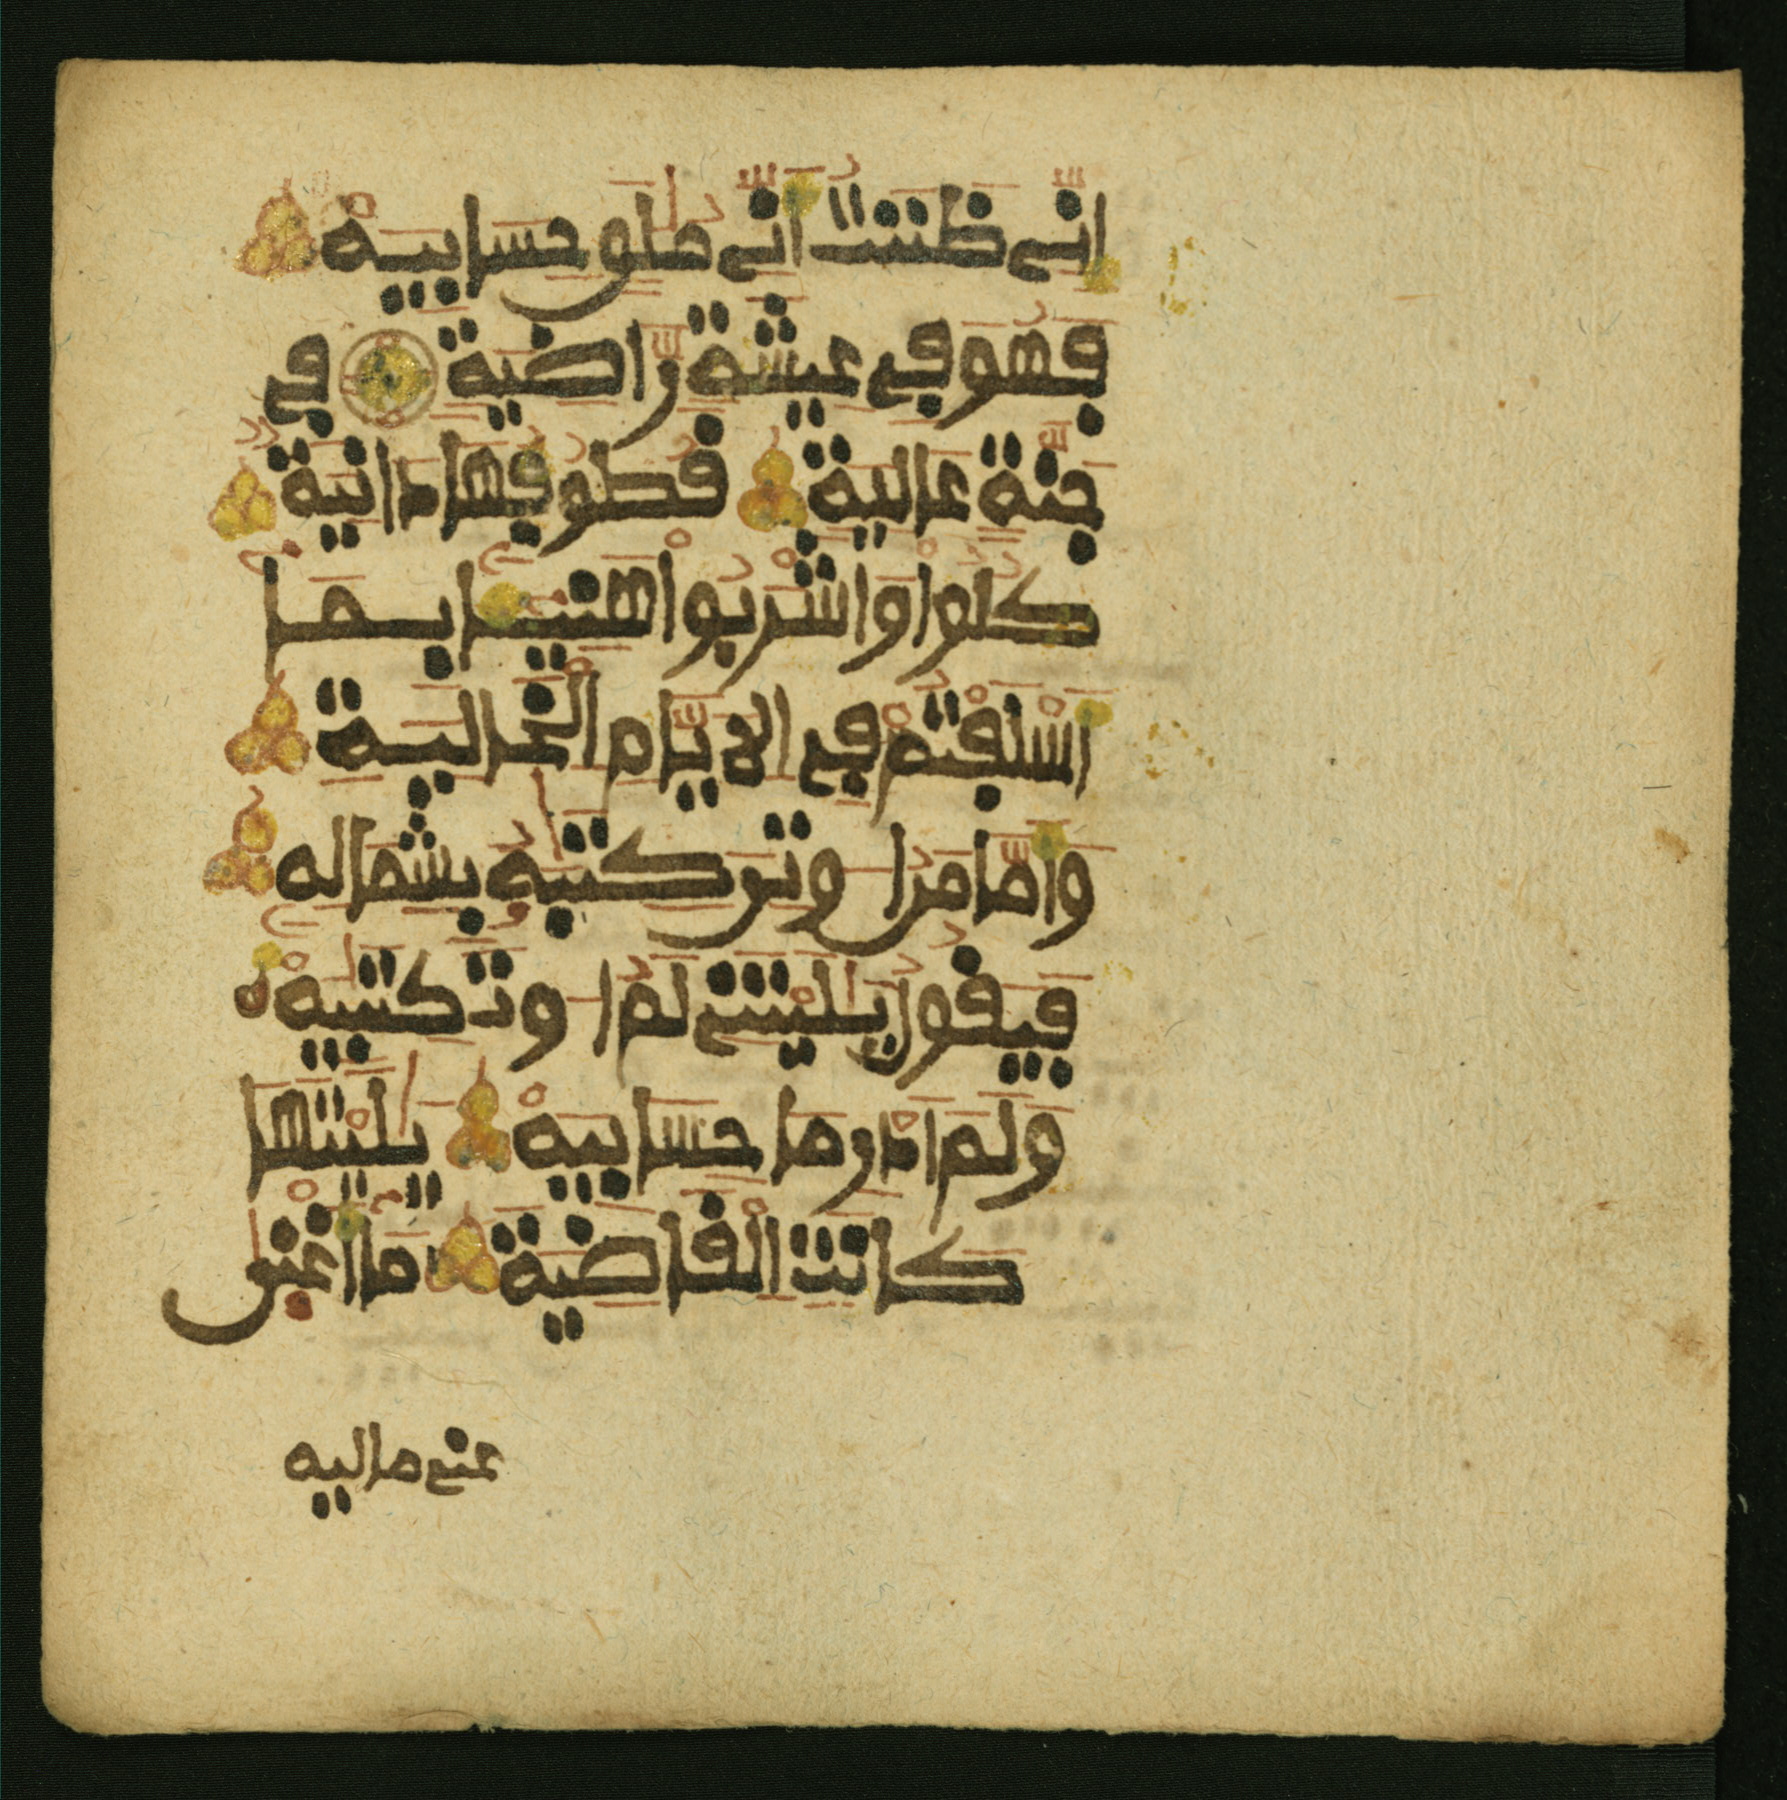 إِنِّي ظَنَنتُ أَنِّي مُلَٰقٍ حِسَابِيَهْ
فَهُوَ فِي عِيشَةٍ رَّاضِيَةٍ فِي
جَنَّةٍ عَالِيَةٍ قُطُوفُهَا دَانِيَةٌ
كُلُوا وَاشْرَبُوا هَنِيئًا بِمَا
أَسْلَفْتُمْ فِي الْأَيَّامِ الْخَالِيَةِ
وَأَمَّا مَنْ أُوتِيَ كِتَٰبَهُ بِشِمَالِهِ
فَيَقُولُ يَٰلَيْتَنِي لَمْ أُوتَ كِتَٰبِيَهْ
وَلَمْ أَدْرِ مَا حِسَابِيَهْ يَٰلَيْتَهَا
كَانَتِ الْقَاضِيَةَ مَا أَغْنَىٰ
عني ماليه